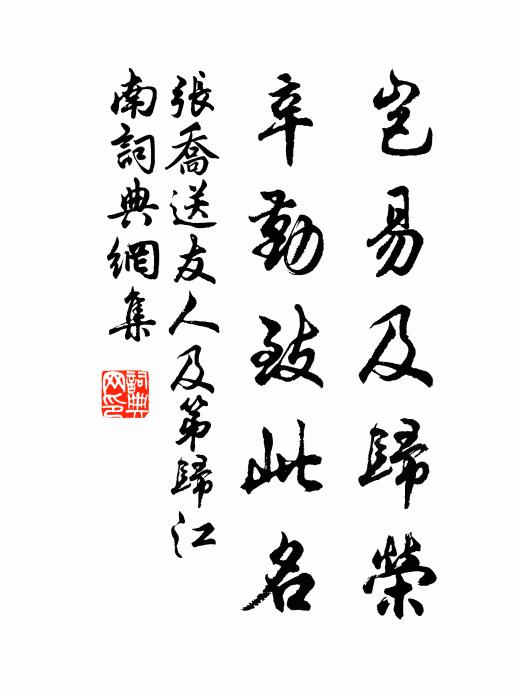 豈易及歸榮
辛勤致此名
張喬送友人及第歸江
南詞典網集
詞典
网印